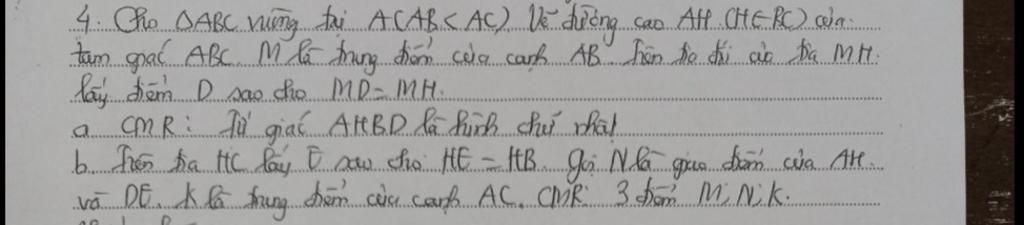 4. Cho ΔABC vuông tại A (AB < AC). Vẽ đường cao AH (H ∈ BC) của
tam giác ABC. M là trung điểm của cạnh AB. Trên tia đối của tia MH
lấy điểm D sao cho MD = MH.
a CMR: Tứ giác AHBD là hình chữ nhật
b. Trên tia HC lấy E sao cho HE = HB. Gọi N là giao điểm của AH
và DE. K là trung điểm của cạnh AC. CMR: 3 điểm M, N, K.